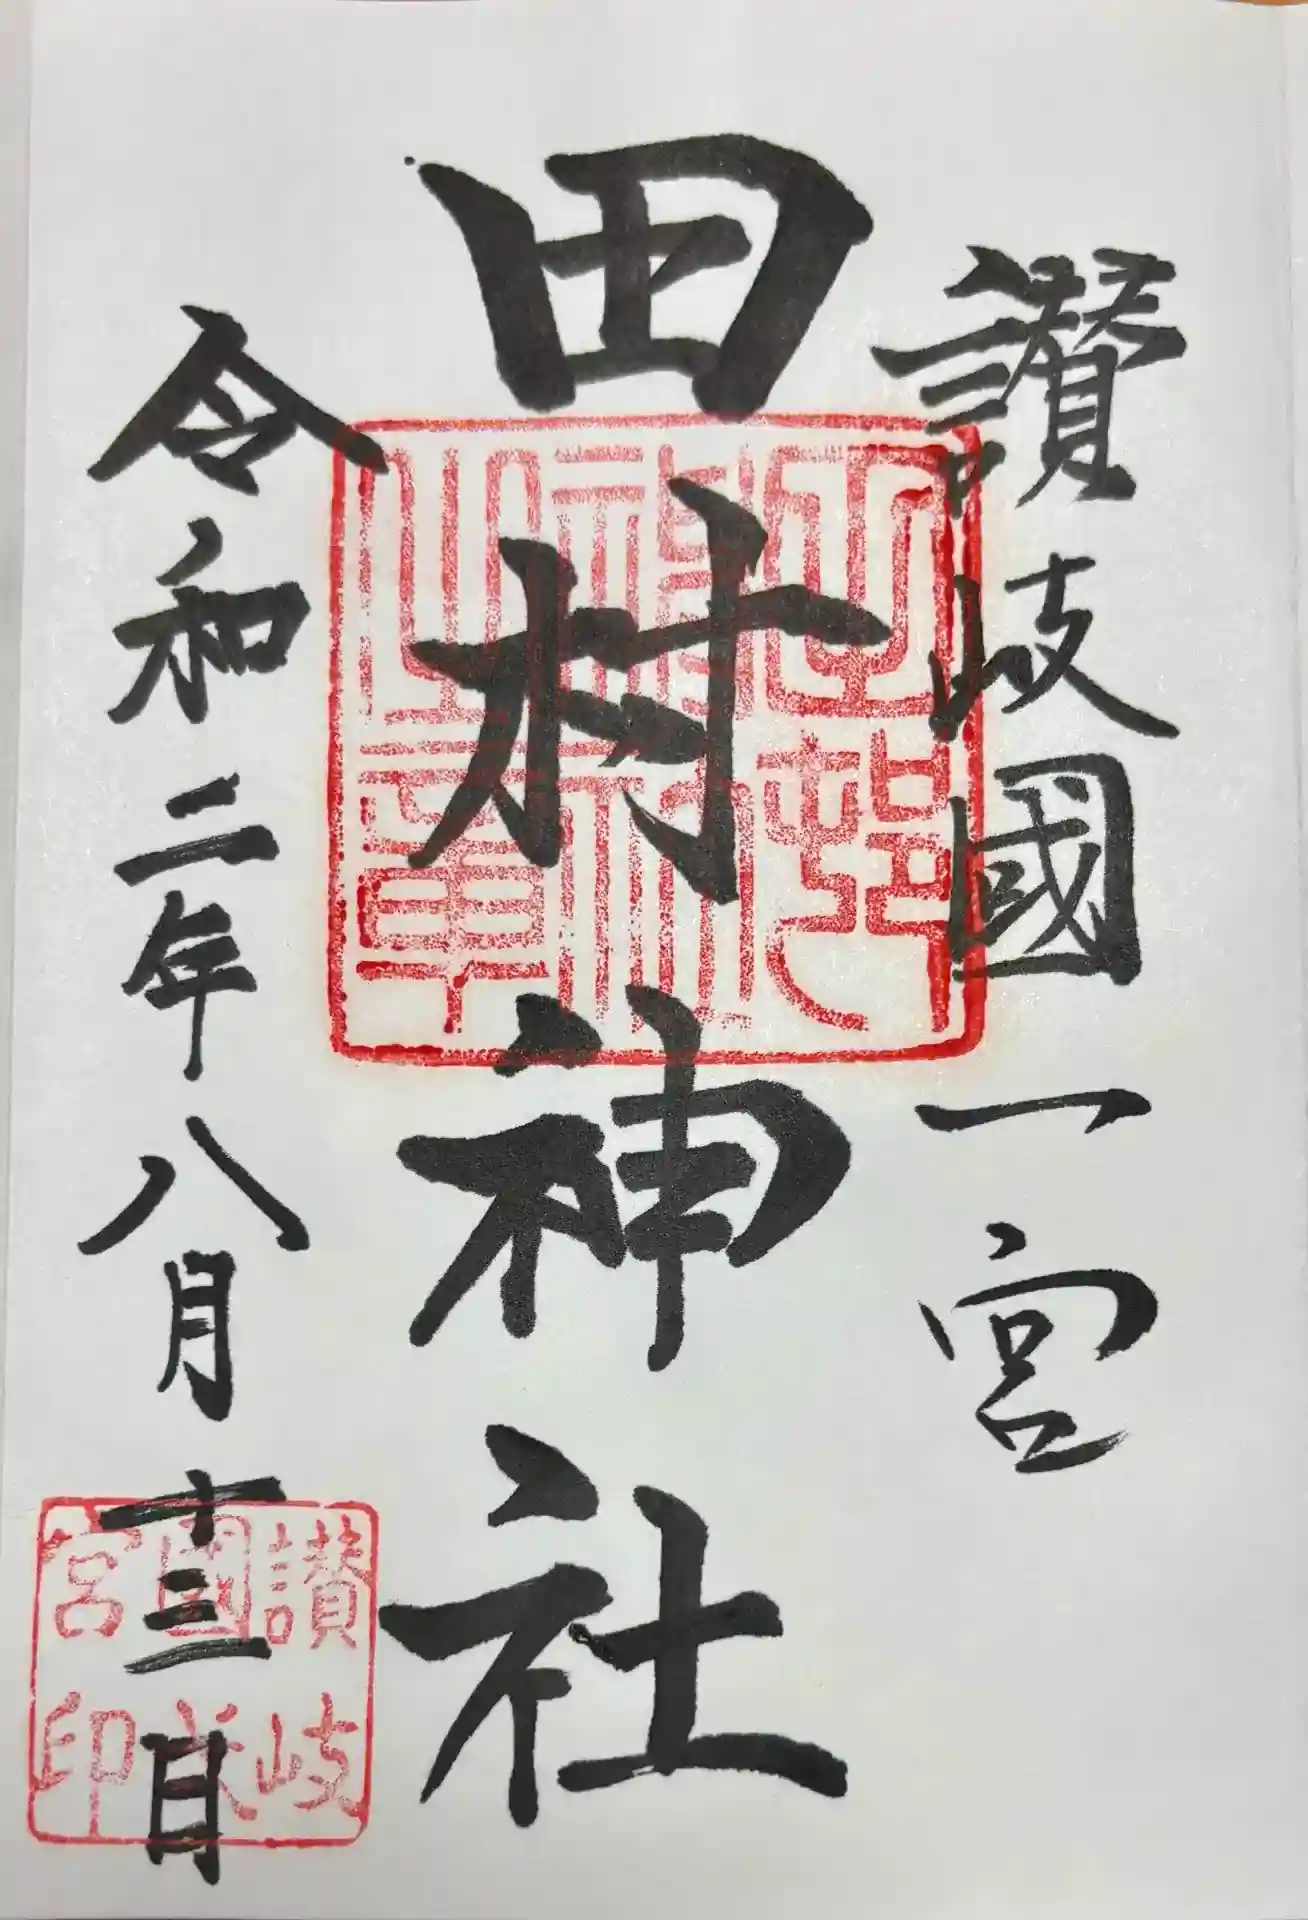 讃岐國一宮
田村神社
令和二年八月十三日
讃岐
國
宮印